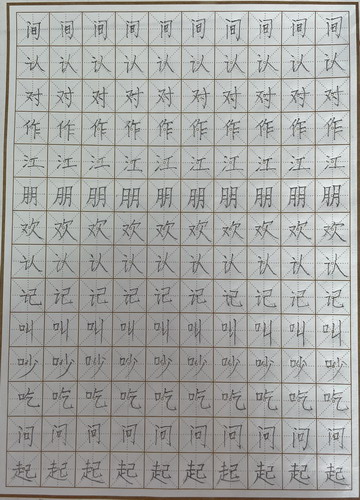 间间间间间间间间间间
认认认认认认认认认认
对对对对对对对对对对
作作作作作作作作作作
江江江江江江江江江江
朋朋朋朋朋朋朋朋朋朋
欢欢欢欢欢欢欢欢欢欢
认认认认认认认认认认
记记记记记记记记记记
叫叫叫叫叫叫叫叫叫叫
吵吵吵吵吵吵吵吵吵吵
吃吃吃吃吃吃吃吃吃吃
问问问问问问问问问问
起起起起起起起起起起